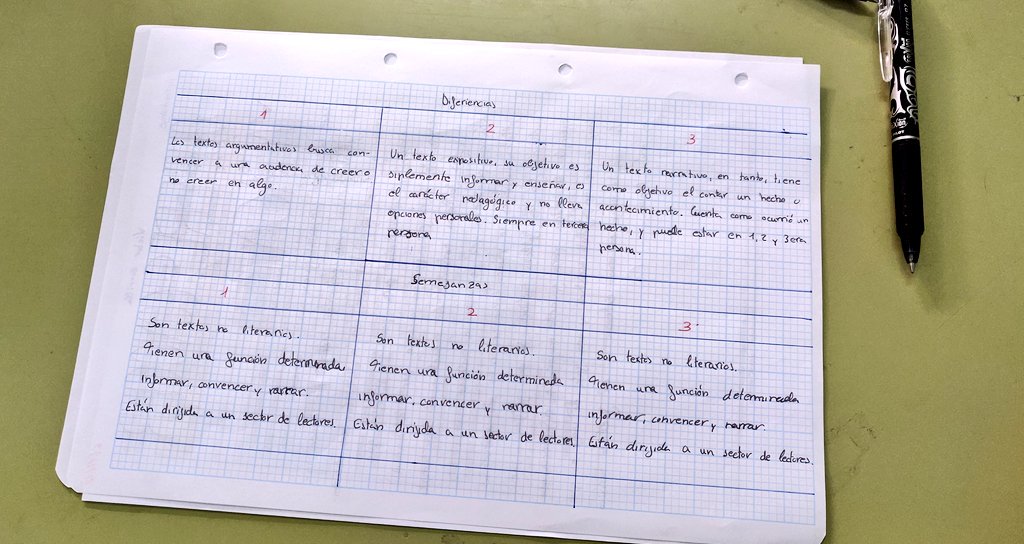 Diferiencias
1
2
3
Los textos argumentativos busca con-
vencer a una audencia de creer o
no creer en algo.
Un texto expositivo, su objetivo es
siplemente informar y enseñar, es
el carácter pedagógico y no lleva
opciones personales. Siempre en tercera
persona
Un texto narrativo, en tanto, tiene
como objetivo el contar un hecho u
acontecimiento. Cuenta como ocurrió un
hecho, y puede estar en 1, 2 y 3era
persona.
Semejanzas
1
2
3
Son textos no literarios.
Tienen una función determinada
informar, convencer y narrar.
Están dirijida a un sector de lectores.
Son textos no literarios.
Tienen una función determinada
informar, convencer y narrar.
Están dirijida a un sector de lectores.
Son textos no literarios.
Tienen una función determinada
informar, convencer y narrar.
Están dirijida a un sector de lectores.